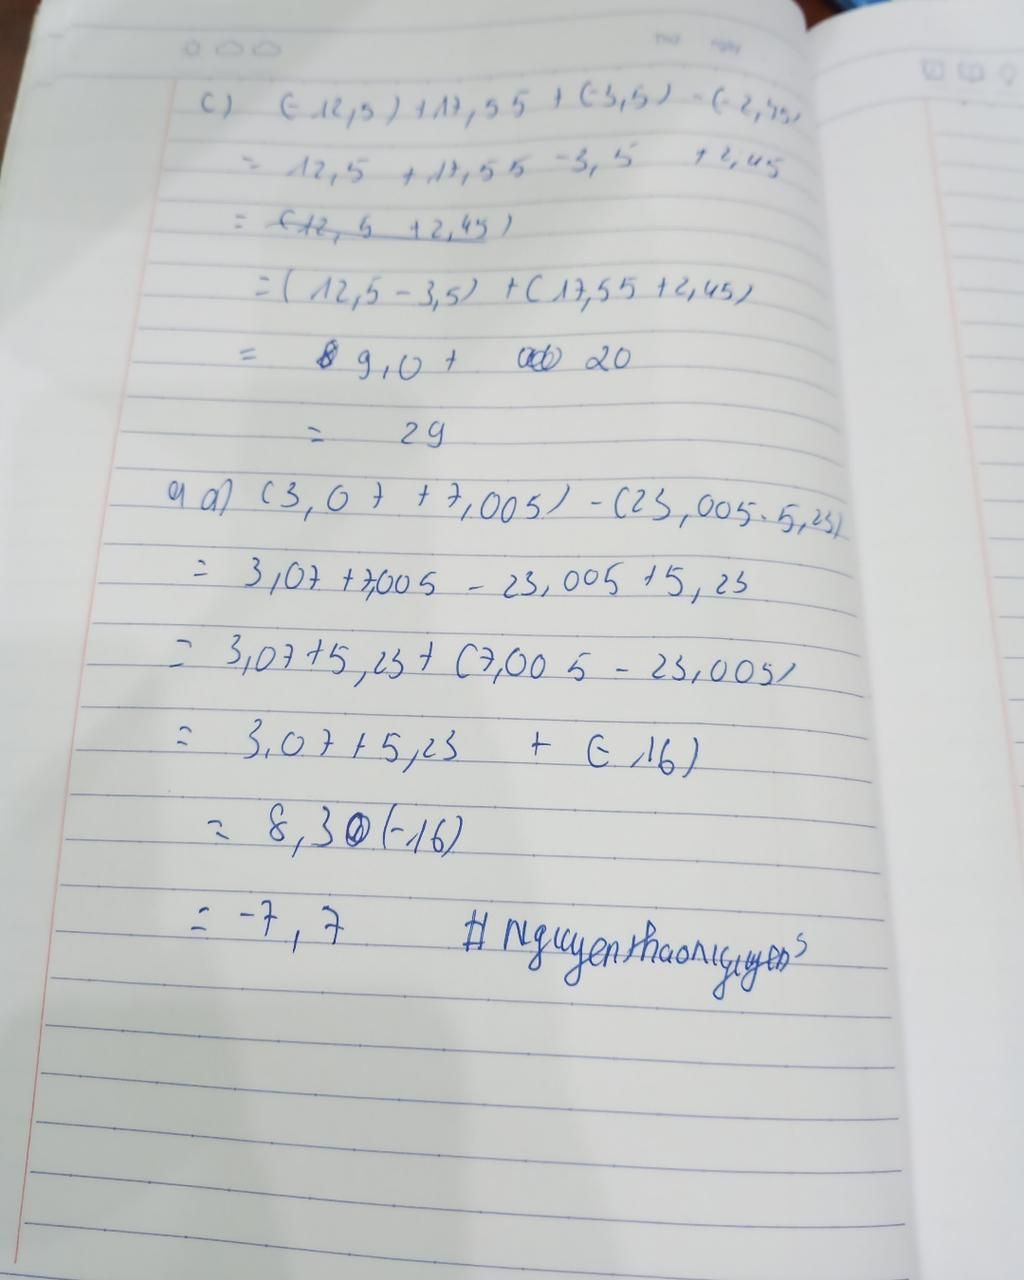 Thứ ngày
c) (-12,5) + 17,55 + (-3,5) - (-2,45)
= 12,5 + 17,55 - 3,5 + 2,45
= (12,5 + 2,45)
= (12,5 - 3,5) + (17,55 + 2,45)
= 9,0 + 20
= 29
a) (3,07 + 7,005) - (23,005 - 5,23)
= 3,07 + 7,005 - 23,005 + 5,23
= 3,07 + 5,23 + (7,005 - 23,005)
= 3,07 + 5,23 + (-16)
= 8,30 (-16)
= -7,7